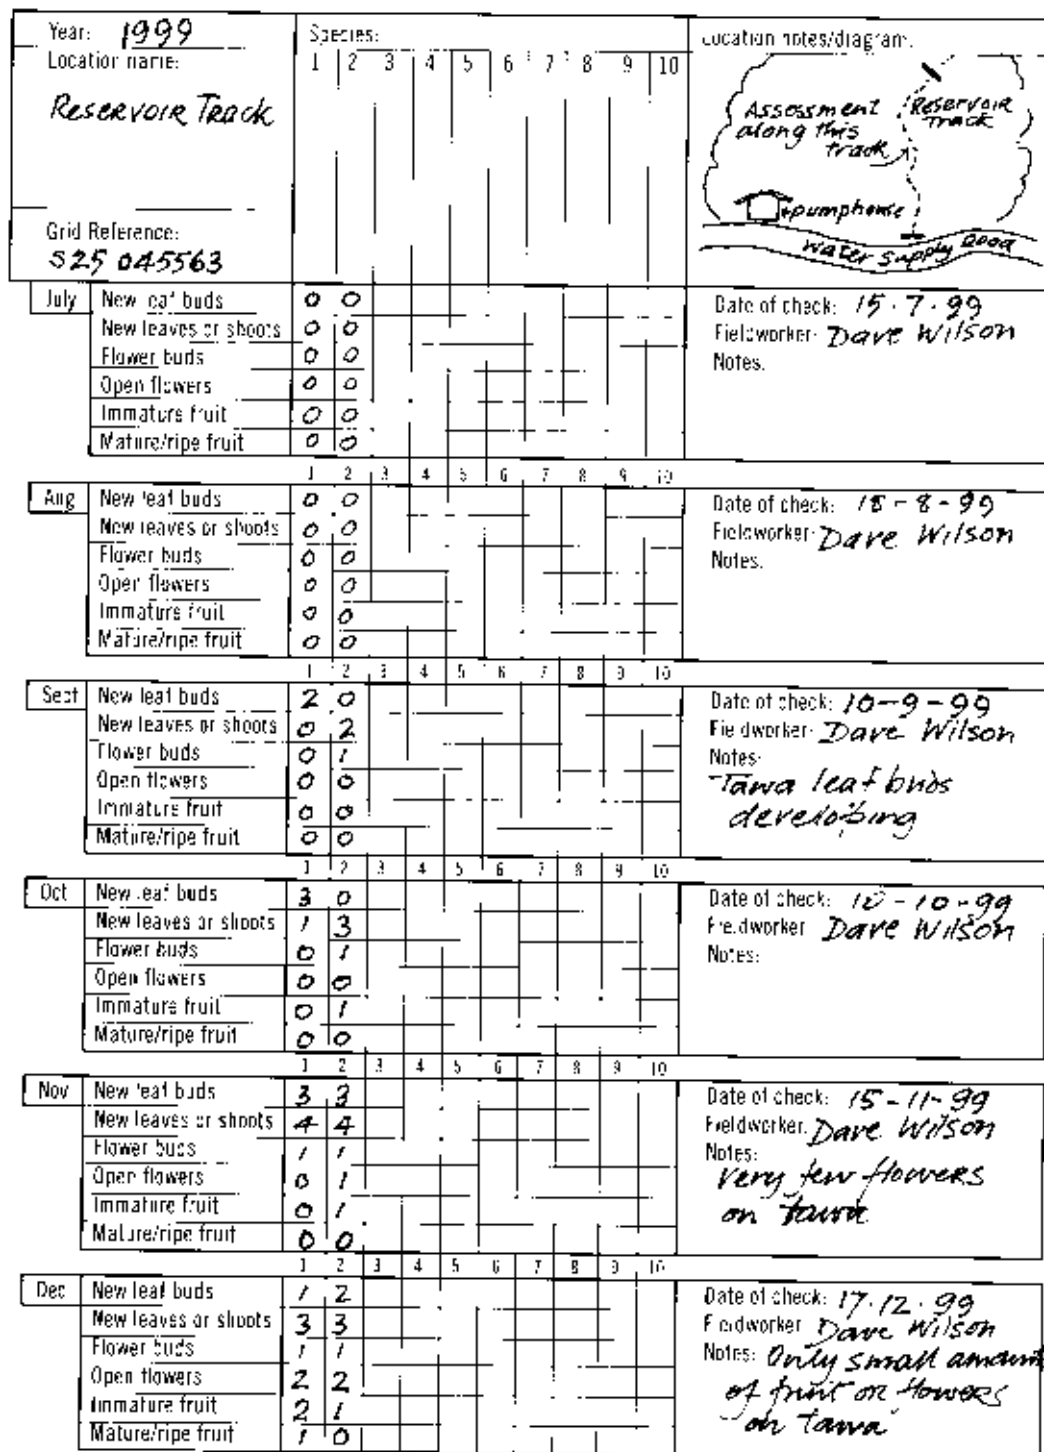 Year: 1999
Location name:
Reservoir Track
Grid Reference:
S25 045563
Species:
1 2 3 4 5 6 7 8 9 10
Location notes/diagram:
Assessment along this track
Reservoir Track
pumphouse
Water Supply Road
July
New leaf buds 0 0
New leaves or shoots 0 0
Flower buds 0 0
Open flowers 0 0
Immature fruit 0 0
Mature/ripe fruit 0 0
Date of check: 15.7.99
Fieldworker: Dave Wilson
Notes:
1 2 3 4 5 6 7 8 9 10
Aug
New leaf buds 0 0
New leaves or shoots 0 0
Flower buds 0 0
Open flowers 0 0
Immature fruit 0 0
Mature/ripe fruit 0 0
Date of check: 18-8-99
Fieldworker: Dave Wilson
Notes:
1 2 3 4 5 6 7 8 9 10
Sept
New leaf buds 2 0
New leaves or shoots 0 2
Flower buds 0 1
Open flowers 0 0
Immature fruit 0 0
Mature/ripe fruit 0 0
Date of check: 10-9-99
Fieldworker: Dave Wilson
Notes:
Tawa leaf buds
developing
1 2 3 4 5 6 7 8 9 10
Oct
New leaf buds 3 0
New leaves or shoots 1 3
Flower buds 0 1
Open flowers 0 0
Immature fruit 0 1
Mature/ripe fruit 0 0
Date of check: 10-10-99
Fieldworker Dave Wilson
Notes:
1 2 3 4 5 6 7 8 9 10
Nov
New leaf buds 3 3
New leaves or shoots 4 4
Flower buds 1 1
Open flowers 0 1
Immature fruit 0 1
Mature/ripe fruit 0 0
Date of check: 15-11-99
Fieldworker: Dave Wilson
Notes:
Very few flowers
on tawa
1 2 3 4 5 6 7 8 9 10
Dec
New leaf buds 1 2
New leaves or shoots 3 3
Flower buds 1 1
Open flowers 2 2
Immature fruit 2 1
Mature/ripe fruit 1 0
Date of check: 17.12.99
Fieldworker Dave Wilson
Notes: Only small amount
of fruit or flowers
on tawa